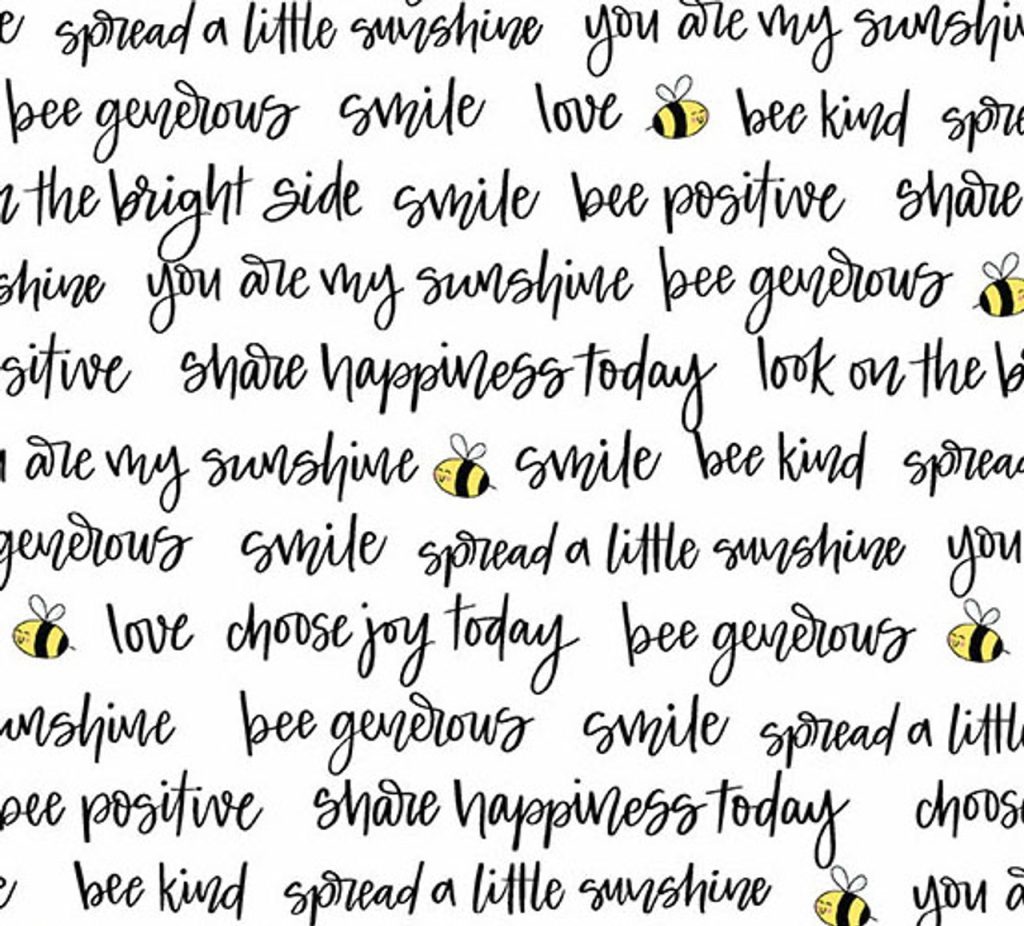 e spread a little sunshine you are my sunshin
bee generous smile love bee kind spre
n the bright side smile bee positive share
shine you are my sunshine bee generous
sitive share happiness today look on the b
u are my sunshine smile bee kind spread
generous smile spread a little sunshine you
love choose joy today bee generous
unshine bee generous smile spread a little
bee positive share happiness today choos
e bee kind spread a little sunshine you a